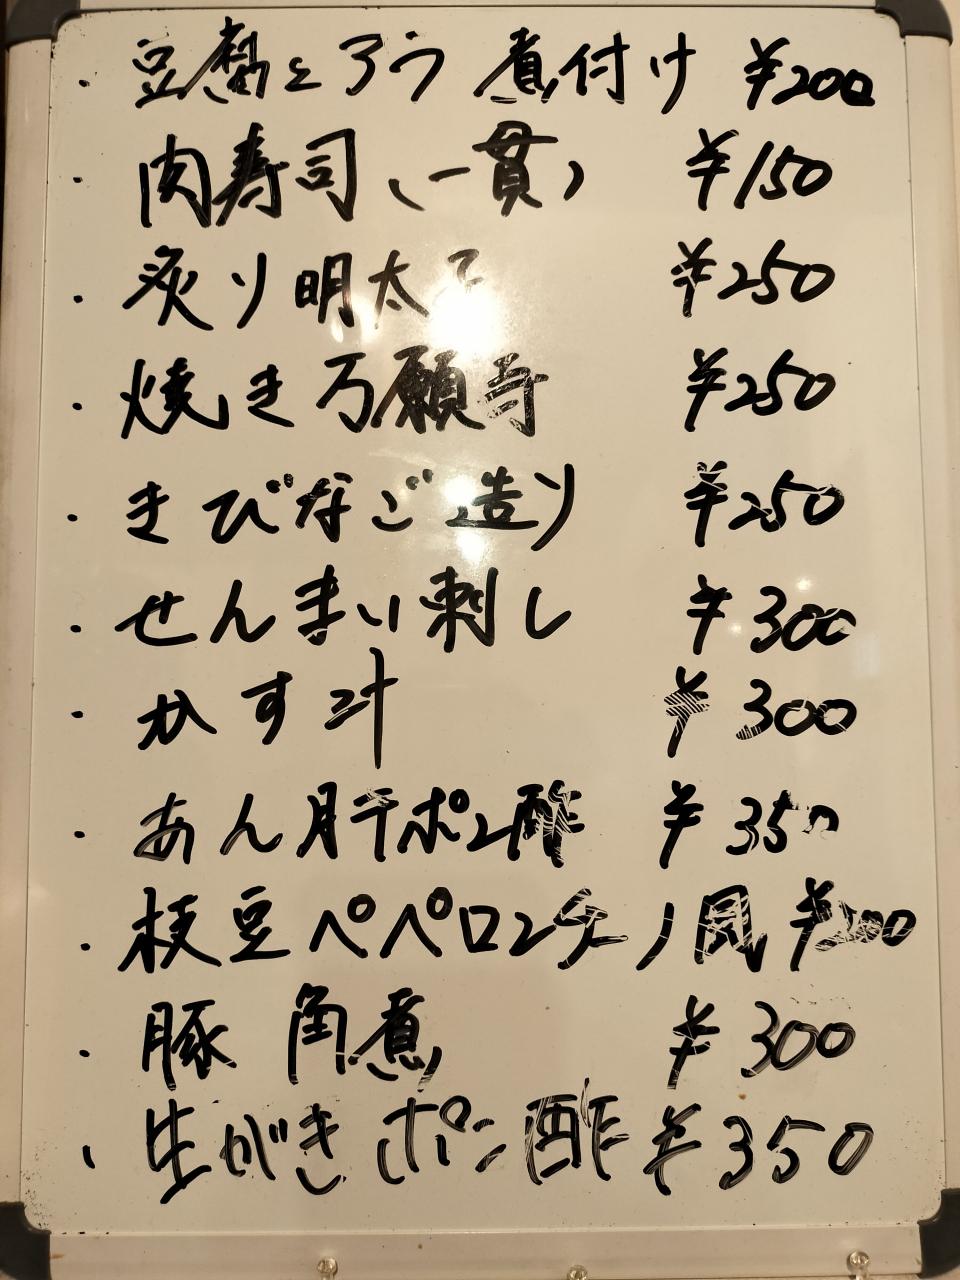 ・豆腐とろう煮付け ¥200
・肉寿司(一貫) ¥150
・炙り明太子 ¥250
・焼き万願寺 ¥250
・きびなご造り ¥250
・せんまい刺し ¥300
・かす汁 ¥300
・あん肝ポン酢 ¥350
・枝豆ペペロンチーノ風
・豚角煮 ¥300
・生がきポン酢 ¥350